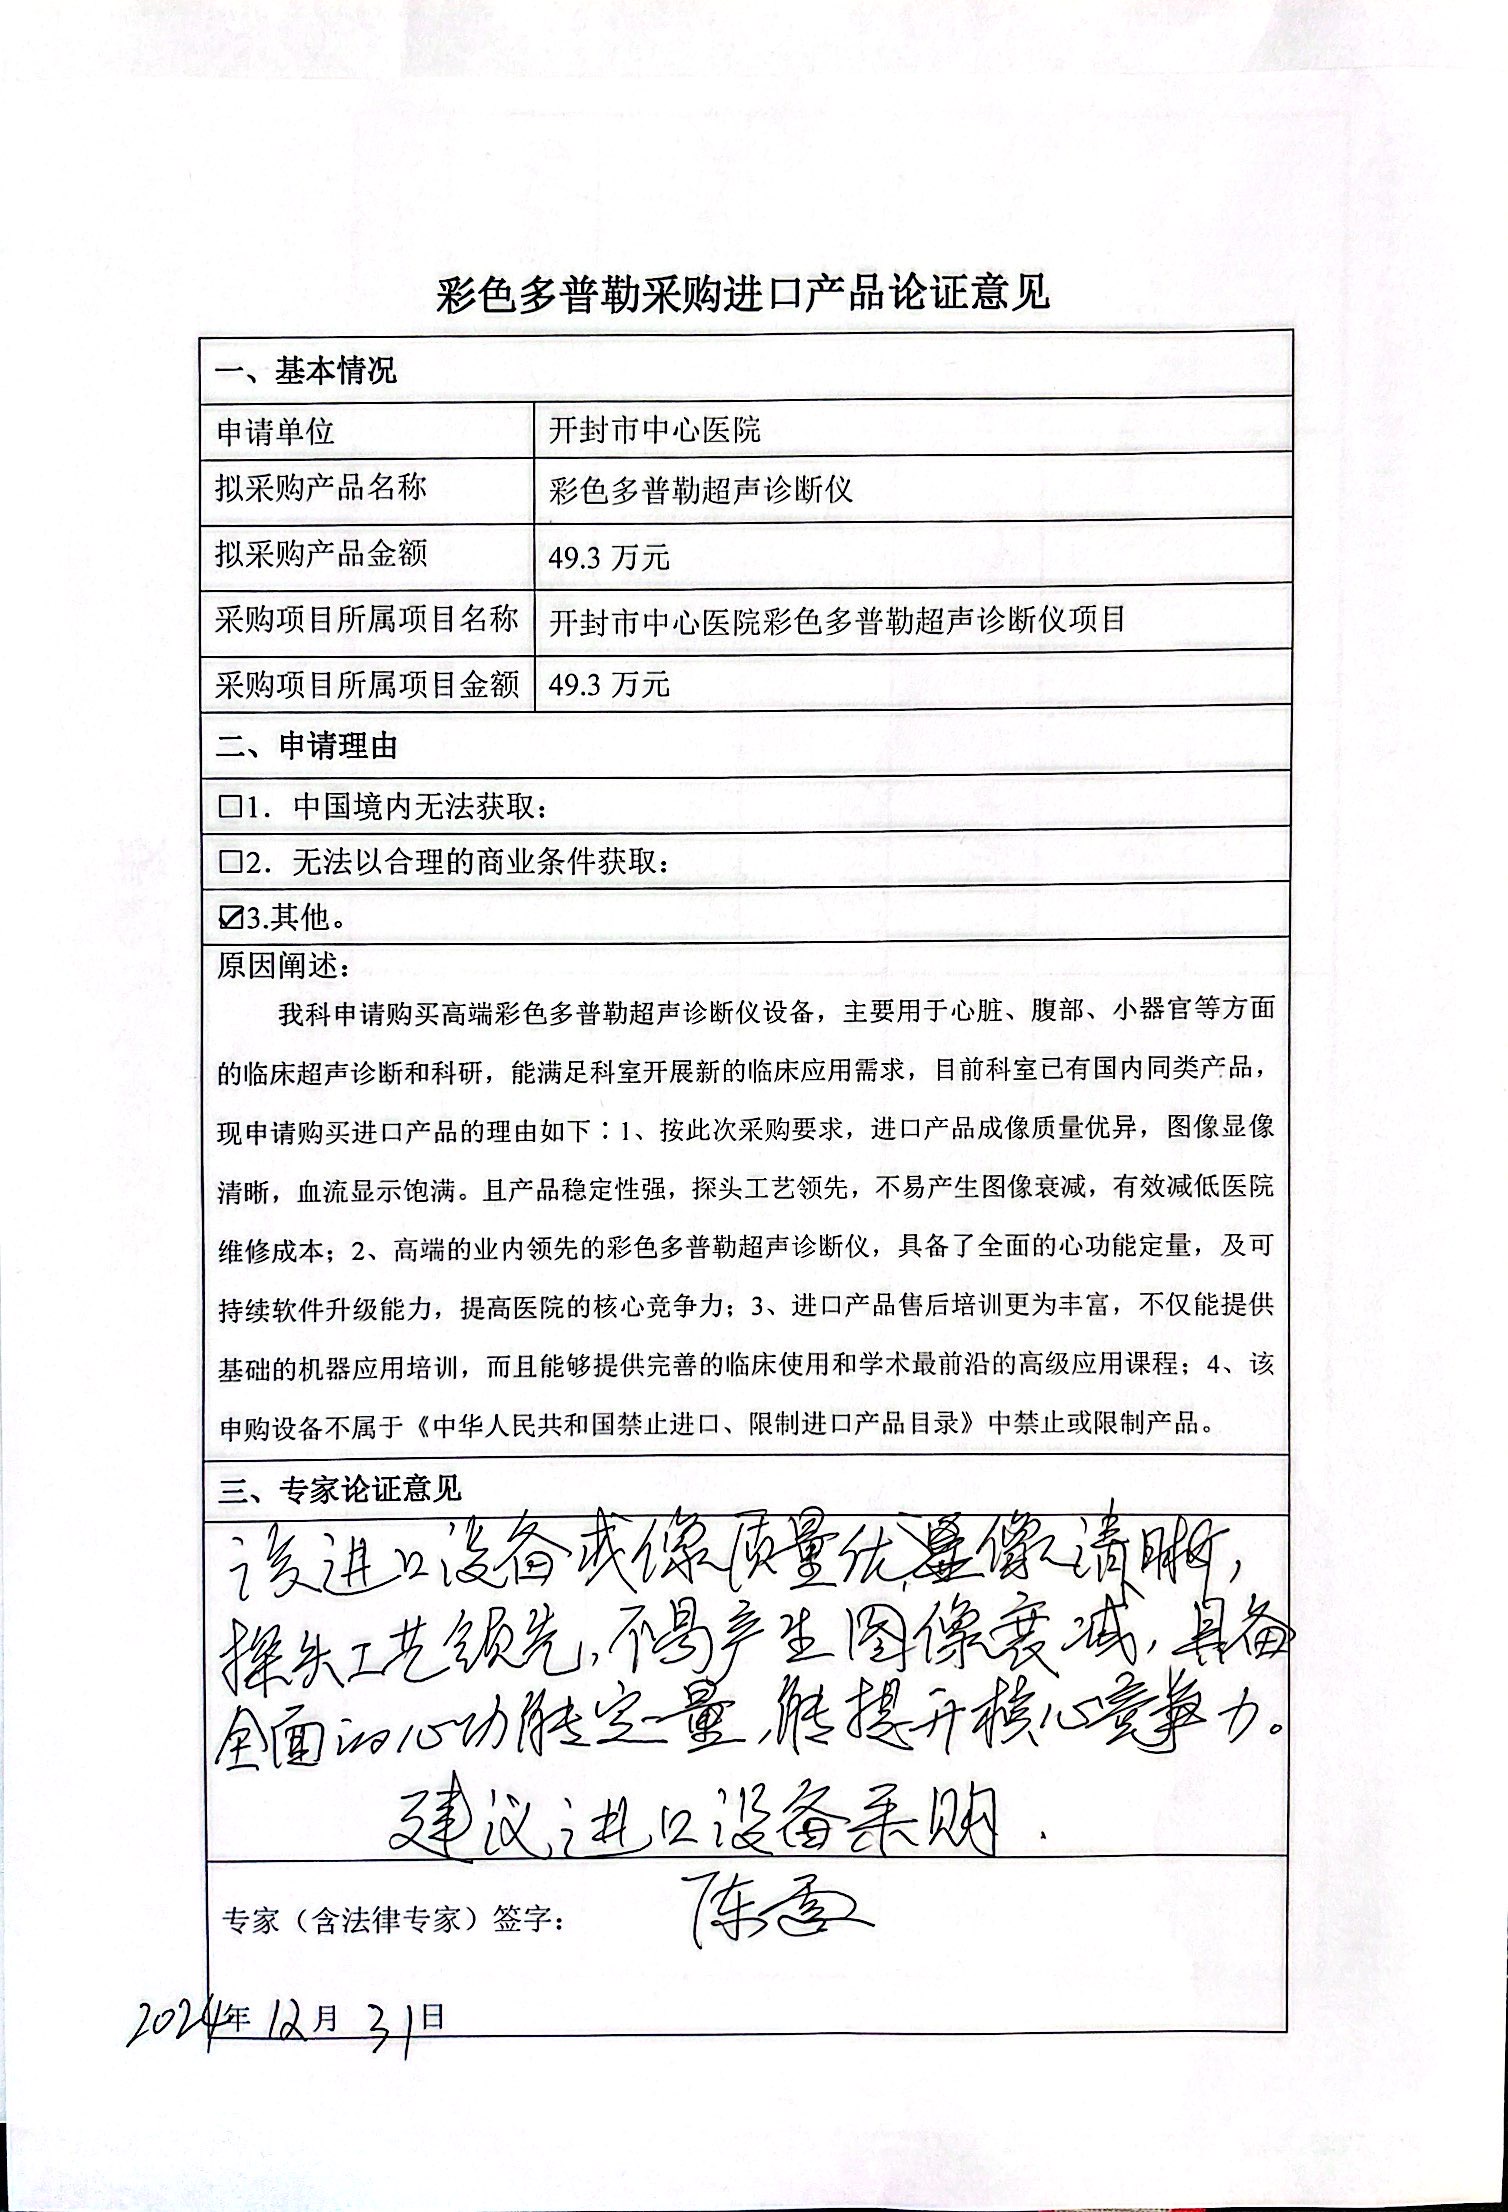 彩色多普勒采购进口产品论证意见
一、基本情况
申请单位 开封市中心医院
拟采购产品名称 彩色多普勒超声诊断仪
拟采购产品金额 49.3 万元
采购项目所属项目名称 开封市中心医院彩色多普勒超声诊断仪项目
采购项目所属项目金额 49.3 万元
二、申请理由
☐1．中国境内无法获取：
☐2．无法以合理的商业条件获取：
☑3.其他。
原因阐述：
我科申请购买高端彩色多普勒超声诊断仪设备，主要用于心脏、腹部、小器官等方面
的临床超声诊断和科研，能满足科室开展新的临床应用需求，目前科室已有国内同类产品，
现申请购买进口产品的理由如下：1、按此次采购要求，进口产品成像质量优异，图像显像
清晰，血流显示饱满。且产品稳定性强，探头工艺领先，不易产生图像衰减，有效减低医院
维修成本；2、高端的业内领先的彩色多普勒超声诊断仪，具备了全面的心功能定量，及可
持续软件升级能力，提高医院的核心竞争力；3、进口产品售后培训更为丰富，不仅能提供
基础的机器应用培训，而且能够提供完善的临床使用和学术最前沿的高级应用课程；4、该
申购设备不属于《中华人民共和国禁止进口、限制进口产品目录》中禁止或限制产品。
三、专家论证意见
该进口设备成像质量优，显像清晰，
探头工艺领先，不易产生图像衰减，具备
全面的心功能定量，能提升核心竞争力。
建议进口设备采购.
专家（含法律专家）签字： 陈
2024年 12月 31日